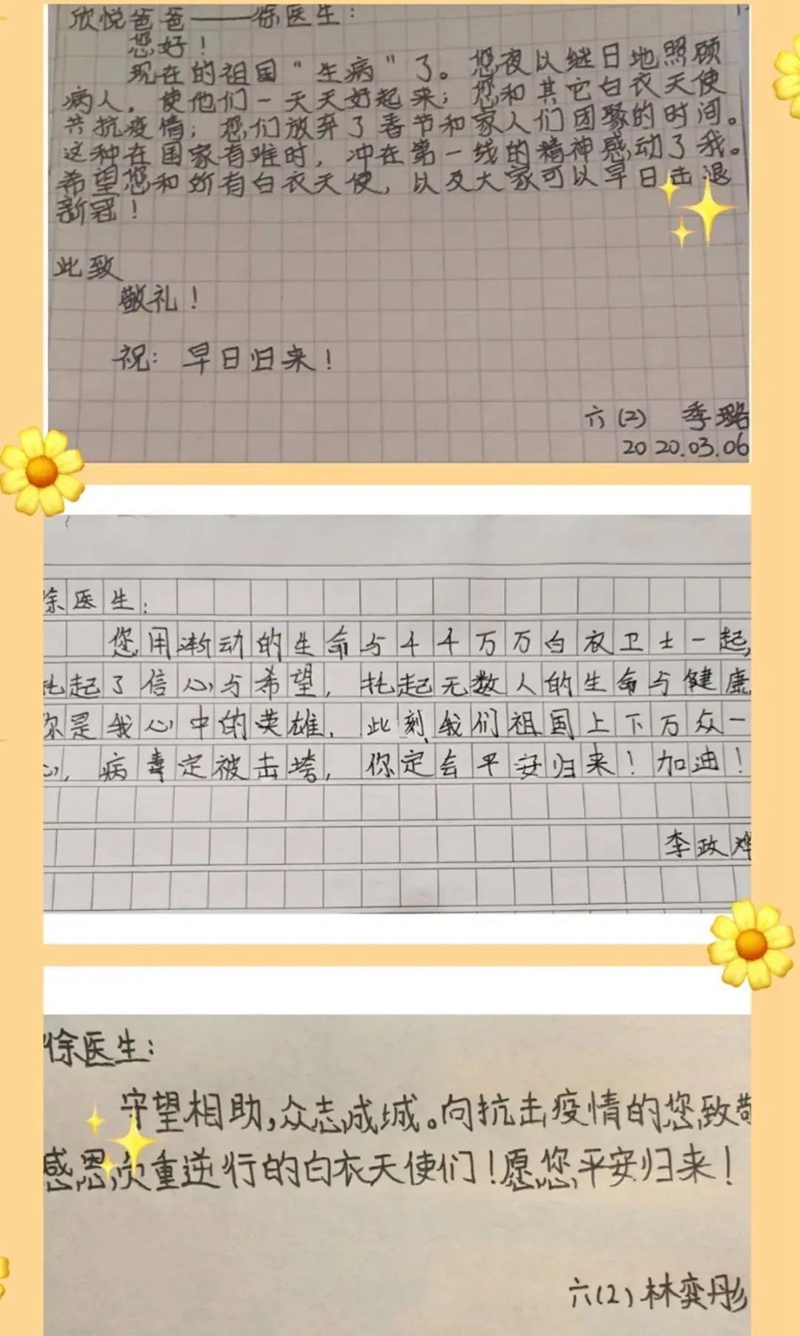 欣悦爸爸——徐医生：
您好！
现在的祖国“生病”了。您夜以继日地照顾
病人，使他们一天天好起来；您和其它白衣天使
共抗疫情；您们放弃了春节和家人们团聚的时间。
这种在国家有难时，冲在第一线的精神感动了我。
希望您和所有白衣天使，以及大家可以早日击退
新冠！
此致
敬礼！
祝：早日归来！
六(2) 季璐
2020.03.06
徐医生：
您用渐动的生命与千千万万白衣卫士一起，
托起了信心与希望，托起无数人的生命与健康
你是我心中的英雄，此刻我们祖国上下万众一
心，病毒定被击垮，你定会平安归来！加油！
李政烨
徐医生：
守望相助，众志成城。向抗击疫情的您致敬
感恩负重逆行的白衣天使们！愿您平安归来！
六(2) 林奕彤